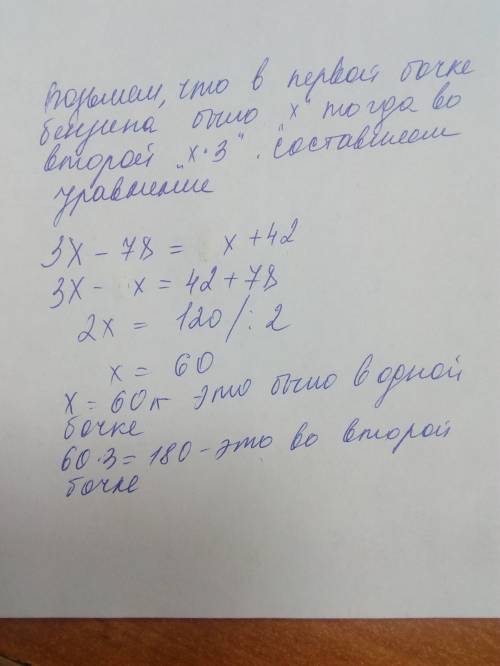 Возьмем, что в первой бочке
бензина было "x" тогда во
второй "x·3". Составляем
уравнение
3x - 78 = x + 42
3x - x = 42 + 78
2x = 120 /: 2
x = 60
x = 60л - это было в одной
бочке
60·3 = 180 - это во второй
бочке